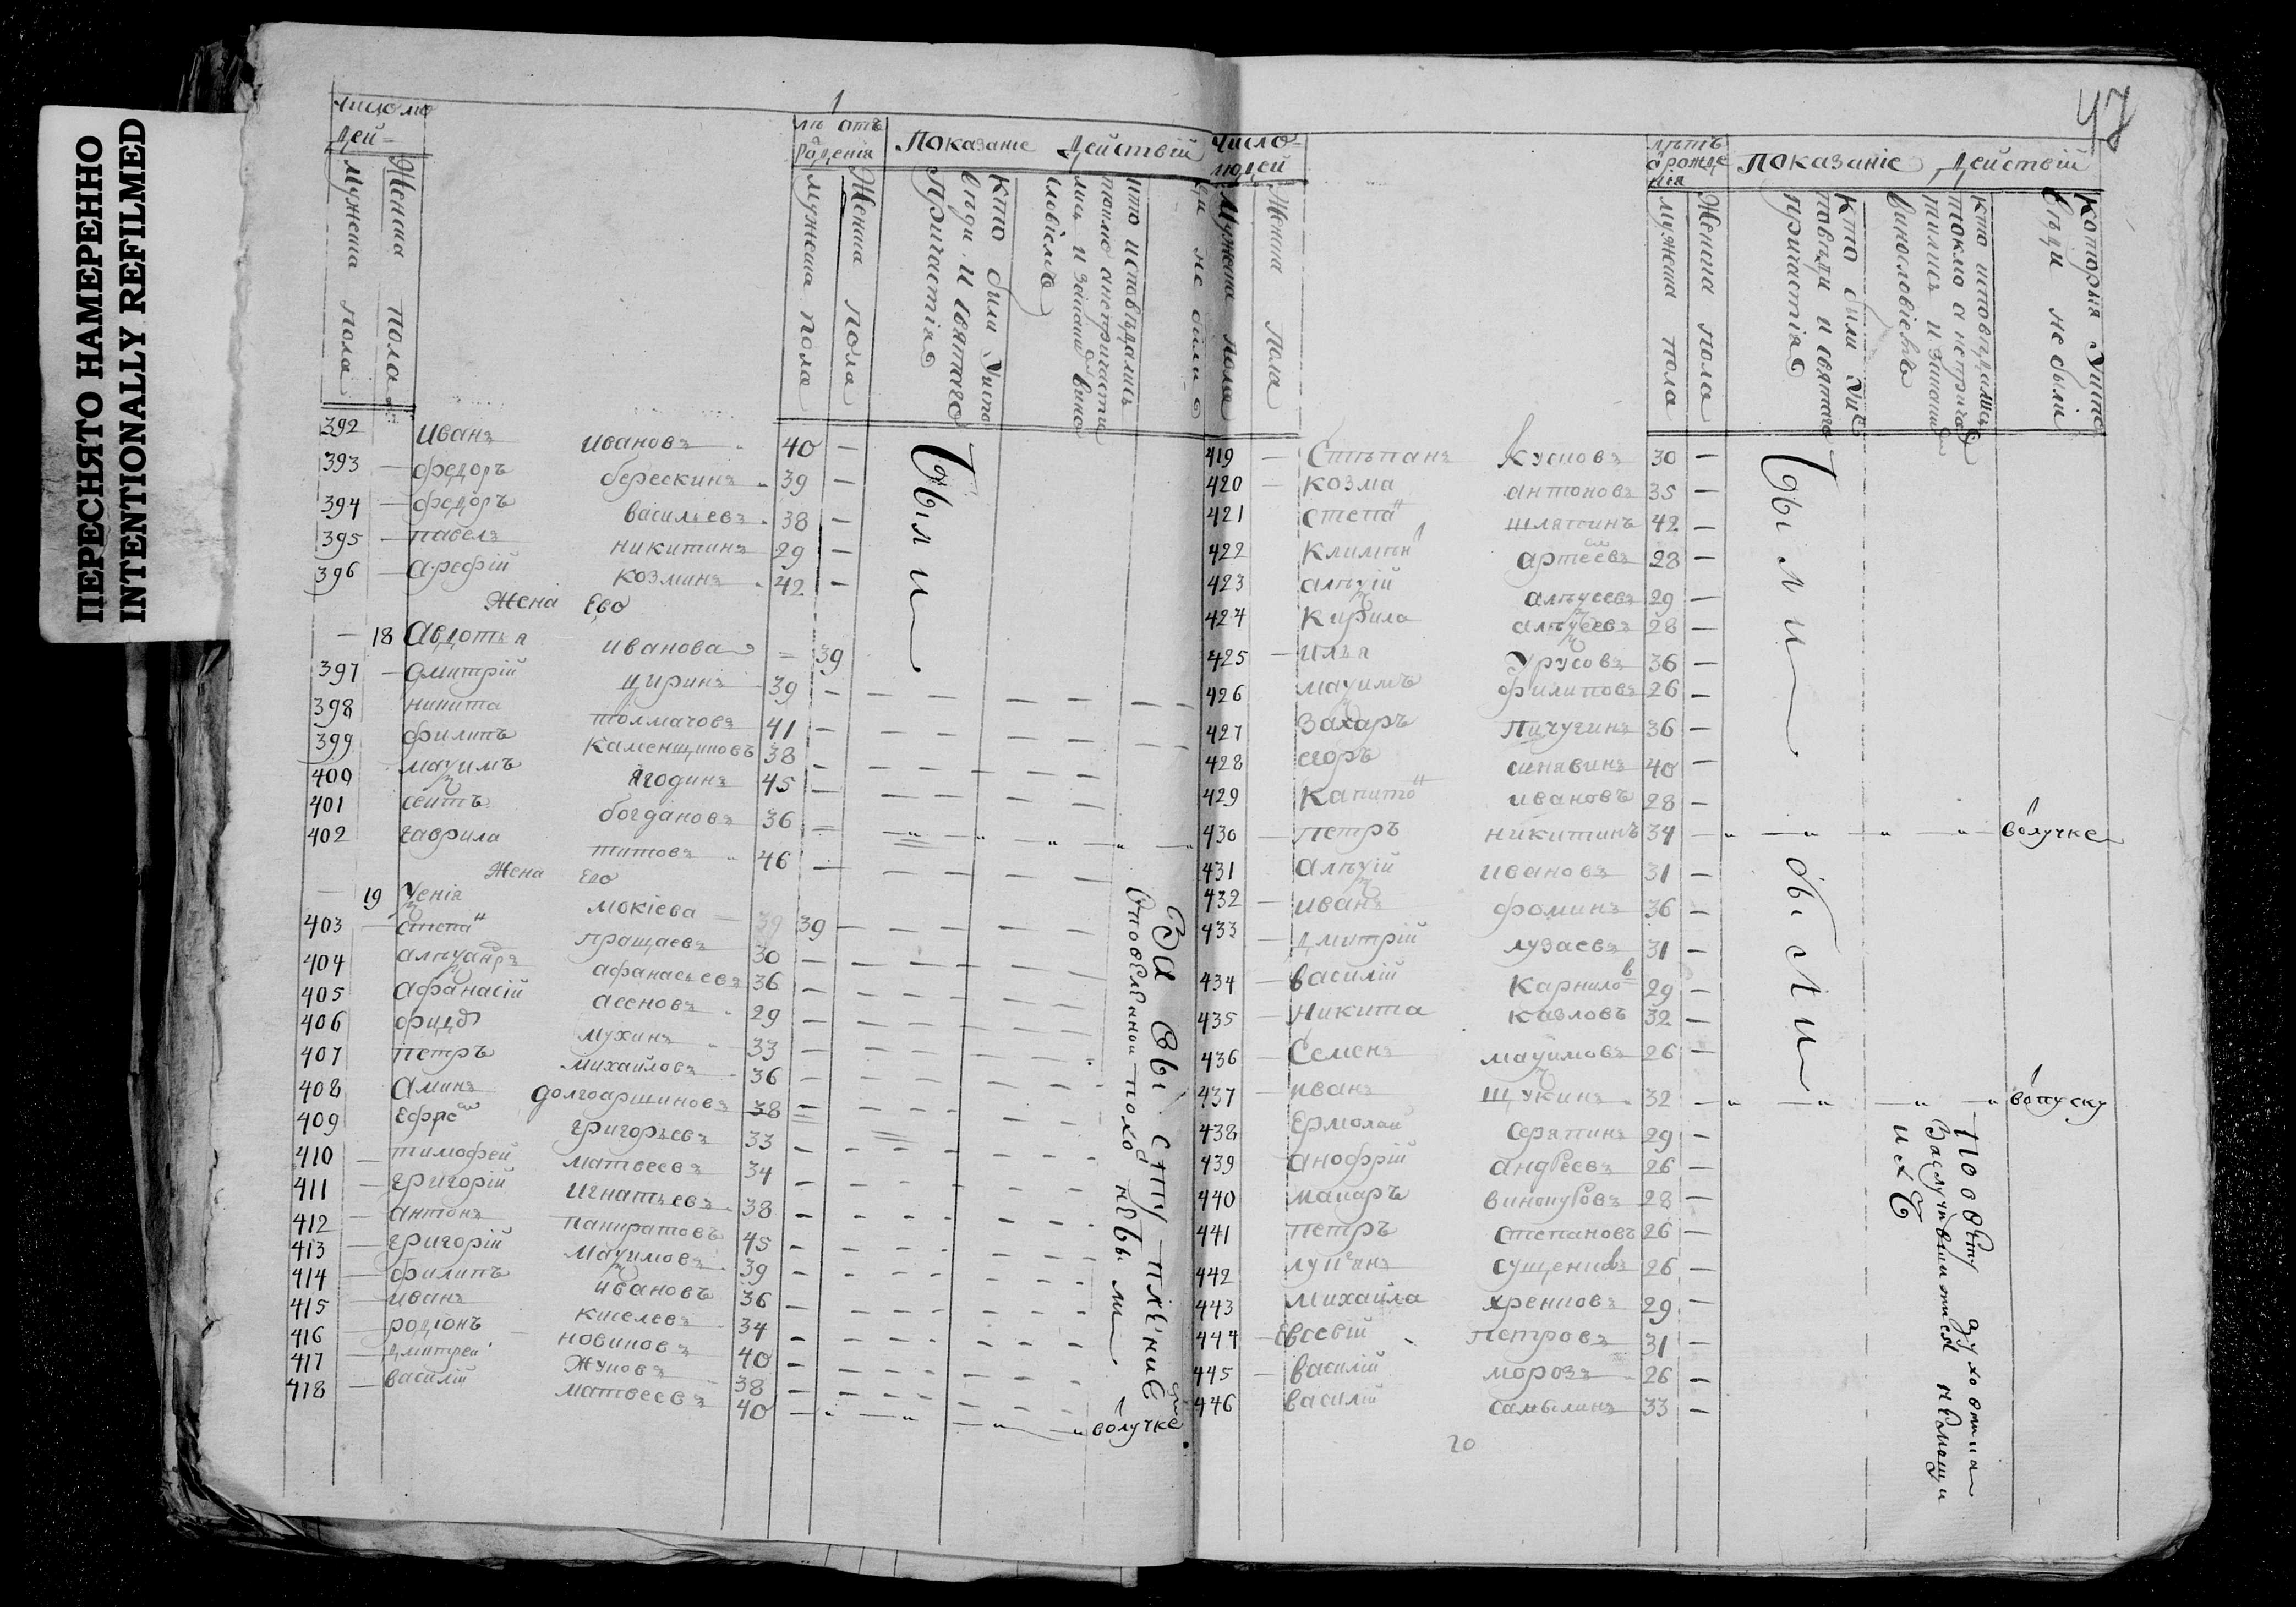 ПЕРЕСНЯТО НАМЕРЕННО
INTENTIONALLY REFILMED
1
число лю
дей
мужеска пола
женска пола
лѣ отъ
рожденія
мужеска пола
женска пола
Показаніе действій
кто были Уиспо
и святаго
Причастія
392 Иванъ Ивановъ 40 —
393 — федоръ берескинъ 39 —
394 — федоръ васильевъ 38 —
395 — павелъ никитинъ 29 —
396 — арефій козминъ 42 —
Жена Ево
— 18 Авдотья иванова = 39
397 — дмитрій цыринъ 39 —
398 никита толмачовъ 41 —
399 филипъ каменщиковъ 38 —
400 маѯимъ ягодинъ 45 —
401 сеитъ богдановъ 36 —
402 гаврила титовъ 46 —
Жена Ево
— 19 Ѯенія мокіева — 39 39
403 — степан пращаевъ 30 —
404 алеѯандръ афанасьевъ 36 —
405 афанасій асеновъ 29 —
406 мухинъ 33 —
407 петръ михайловъ 36 —
408 Аминъ долгоаршиновъ 38 —
409 Ефрем григорьевъ 33 —
410 — тимофей матвеевъ 34 —
411 — григорій игнатьевъ 38 —
412 — антонъ панкратовъ 45 —
413 — григорій маѯимовъ 39 —
414 — филипъ ивановъ 36 —
415 — иванъ киселевъ 34 —
416 — родіонъ новиковъ 40 —
417 — дмитреи жуковъ 38 —
418 — василій матвеевъ 40 — волучке
были
За вы
небыли
47
число
людей
Мужеска пола
Женска пола
лѣтъ
рожде
нія
мужеска пола
Женска пола
показаніе действій
кто были Уис
поведи и святаго
причастія
кто исповедались
токмо а неприча
стились и закаким
винословіемъ
которыя Уиспо
веди не были
419 — Стѣпанъ кусковъ 30 —
420 — козма антоновъ 35 —
421 степан шляпинъ 42 —
422 Климент артеевъ 28 —
423 алѣѯій алѣѯеевъ 29 —
424 Кирила алѣѯеевъ 28 —
425 — илья Урусовъ 36 —
426 маѯимъ филиповъ 26 —
427 Захаръ пичугинъ 36 —
428 егоръ синявинъ 40 —
429 Капитон ивановъ 28 —
430 — петръ никитинъ 34 — волучке
431 алѣѯій ивановъ 31 —
432 — иванъ фоминъ 36 —
433 — дмитрій лузаевъ 31 —
434 — василій Карнилов 29 —
435 — никита казловъ 32 —
436 — Семенъ маѯимовъ 26 —
437 — иванъ щукинъ 32 — вопуску
438 Ермолай серяпинъ 29 —
439 анофрій андреевъ 26 —
440 макаръ винокуровъ 28 —
441 петръ степановъ 26 —
442 лукянъ сущениовъ 26 —
443 михайла хреновъ 29 —
444 — Евсевій петровъ 31 —
445 — василій морозъ 26 —
446 василій самылинъ 33 —
были
были
20